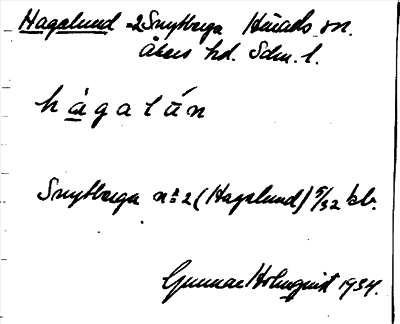 Hagalund =2 Smytberga Härads sn.
Åkers hd. Sdm. l.
hågalún
Smytberga nº 2 (Hagalund) 5/32 kb.
Gunnar Holmquist 1934.